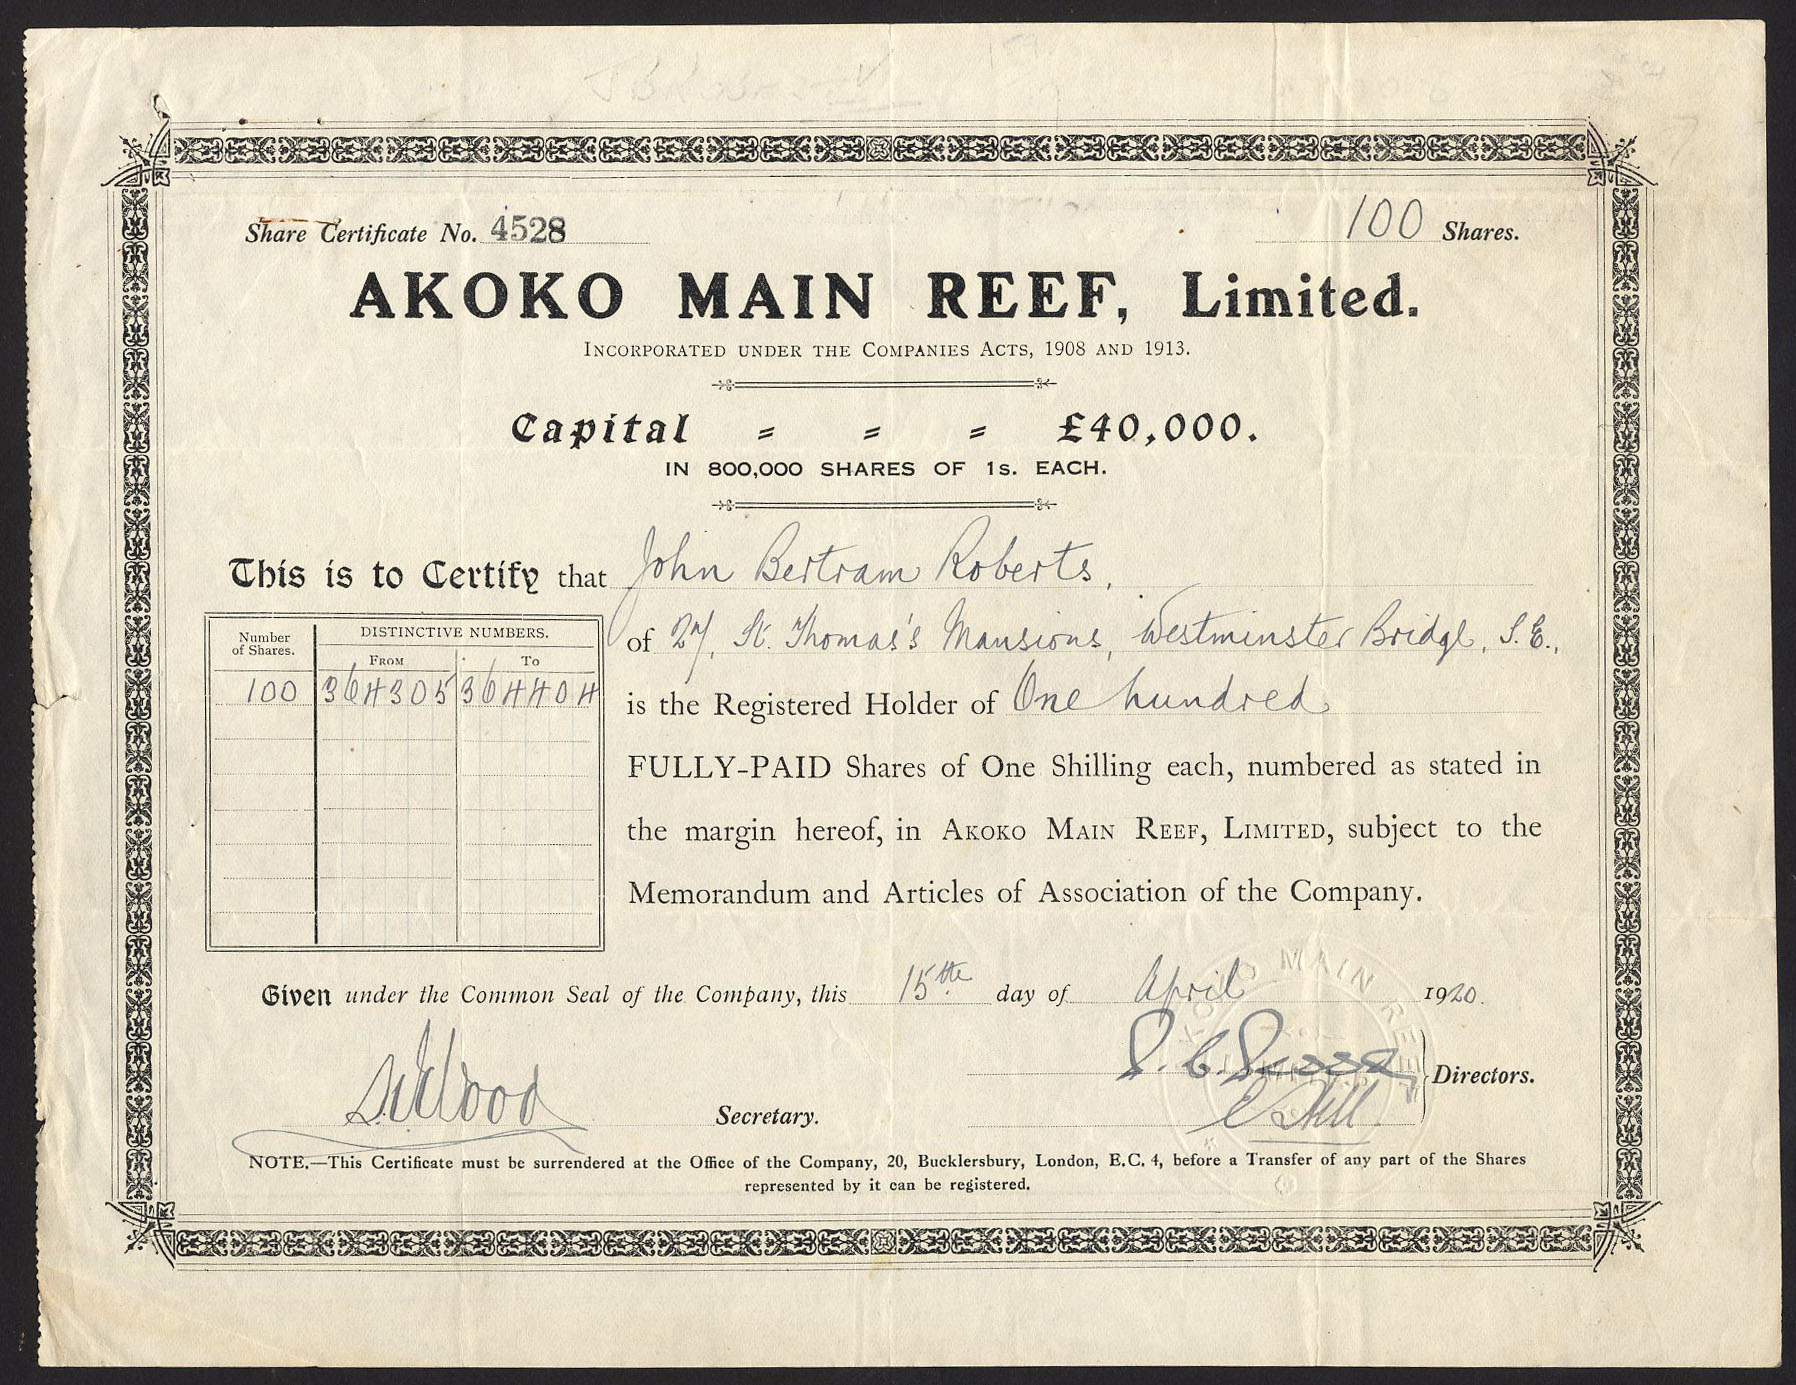 Share Certificate No. 4528
100 Shares.
AKOKO MAIN REEF, Limited.
INCORPORATED UNDER THE COMPANIES ACTS, 1908 AND 1913.
Capital = = = £40,000.
IN 800,000 SHARES OF 1s. EACH.
This is to Certify that John Bertram Roberts,
of 27, St. Thomas's Mansions, Westminster Bridge, S.E.,
is the Registered Holder of One hundred
FULLY-PAID Shares of One Shilling each, numbered as stated in
the margin hereof, in AKOKO MAIN REEF, LIMITED, subject to the
Memorandum and Articles of Association of the Company.
Number of Shares.
DISTINCTIVE NUMBERS.
FROM TO
100 364305 364404
Given under the Common Seal of the Company, this 15th day of April 1920.
AKOKO MAIN REEF LIMITED
Directors.
C Hill
Wood
Secretary.
NOTE.—This Certificate must be surrendered at the Office of the Company, 20, Bucklersbury, London, E.C. 4, before a Transfer of any part of the Shares
represented by it can be registered.